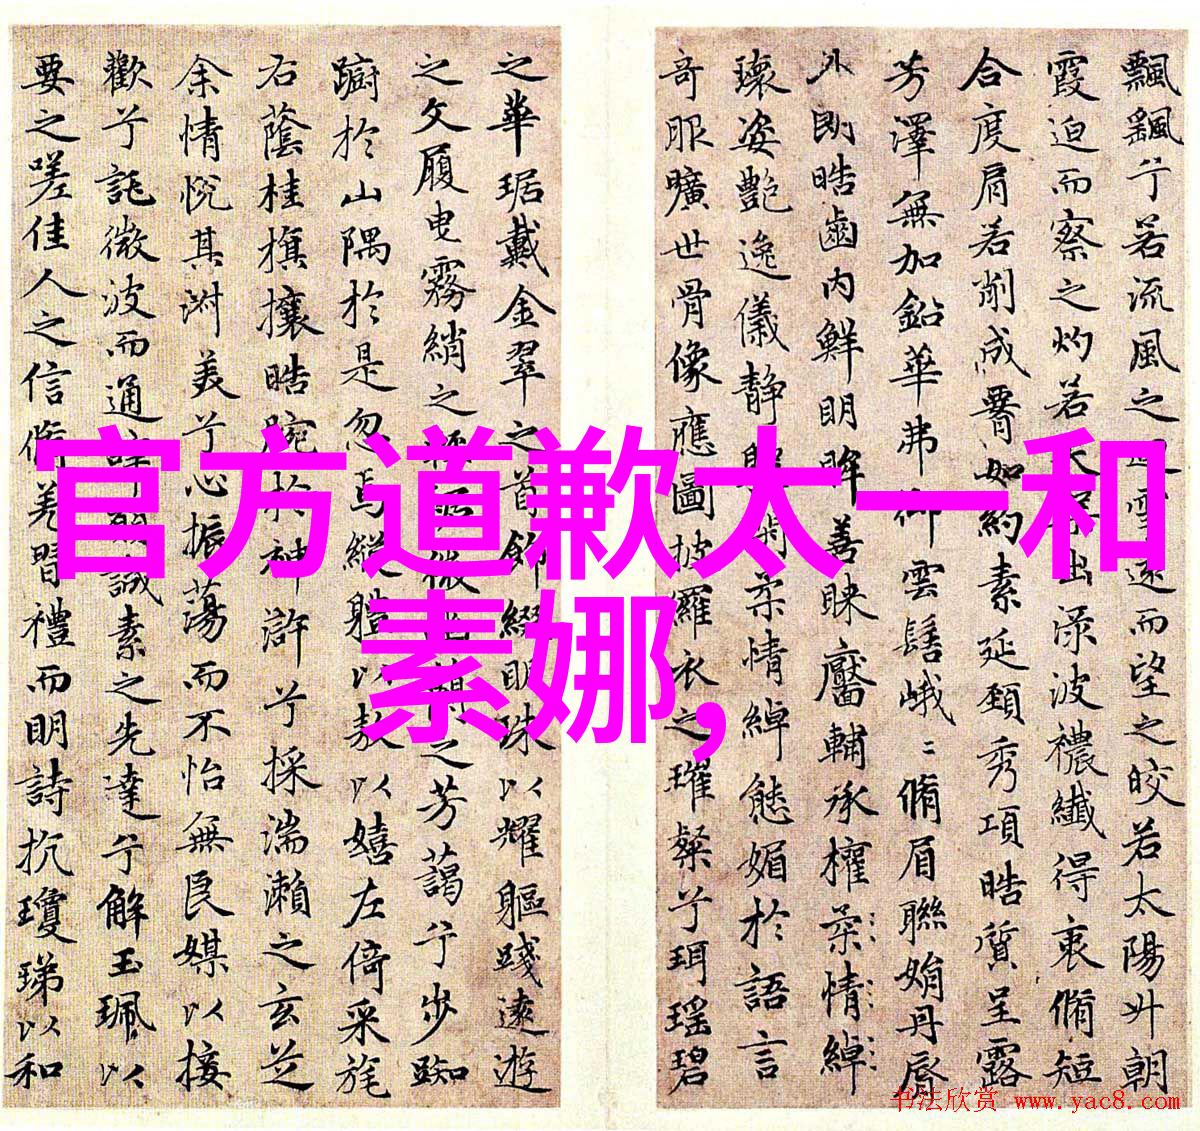 飄飖兮若流風之雪遠而望之皎若太陽升朝
霞迫而察之灼若出淥波禯纖得衷脩短
合度肩若削成如約素延頸秀項皓質呈露
芳澤無加鉛華弗御雲髻峨〻脩眉聯娟丹脣
外朗皓齒內鮮明眸善睞靨輔承權柔情綽
瓌姿艷逸儀靜體柔情綽態媚於語言
奇服曠世骨像應圖披羅衣之璀粲兮珥瑤碧
之華琚戴金翠之首飾綴明珠以耀軀踐遠遊
之文履曳霧綃之微之芳藹兮步踟
躕於山隅於是忽焉縱體以敖以嬉左倚采旄
右蔭桂旗攘皓腕於神滸兮採湍瀨之玄芝
余情悅其淑美兮心振蕩而不怡無良媒以接
歡兮託微波而通誠素之先達兮解玉珮以
要之嗟佳人之信脩羌習禮而明詩抗瓊珶以和
官方道歉太一和
素娜,
书法欣赏 www.yac8.com